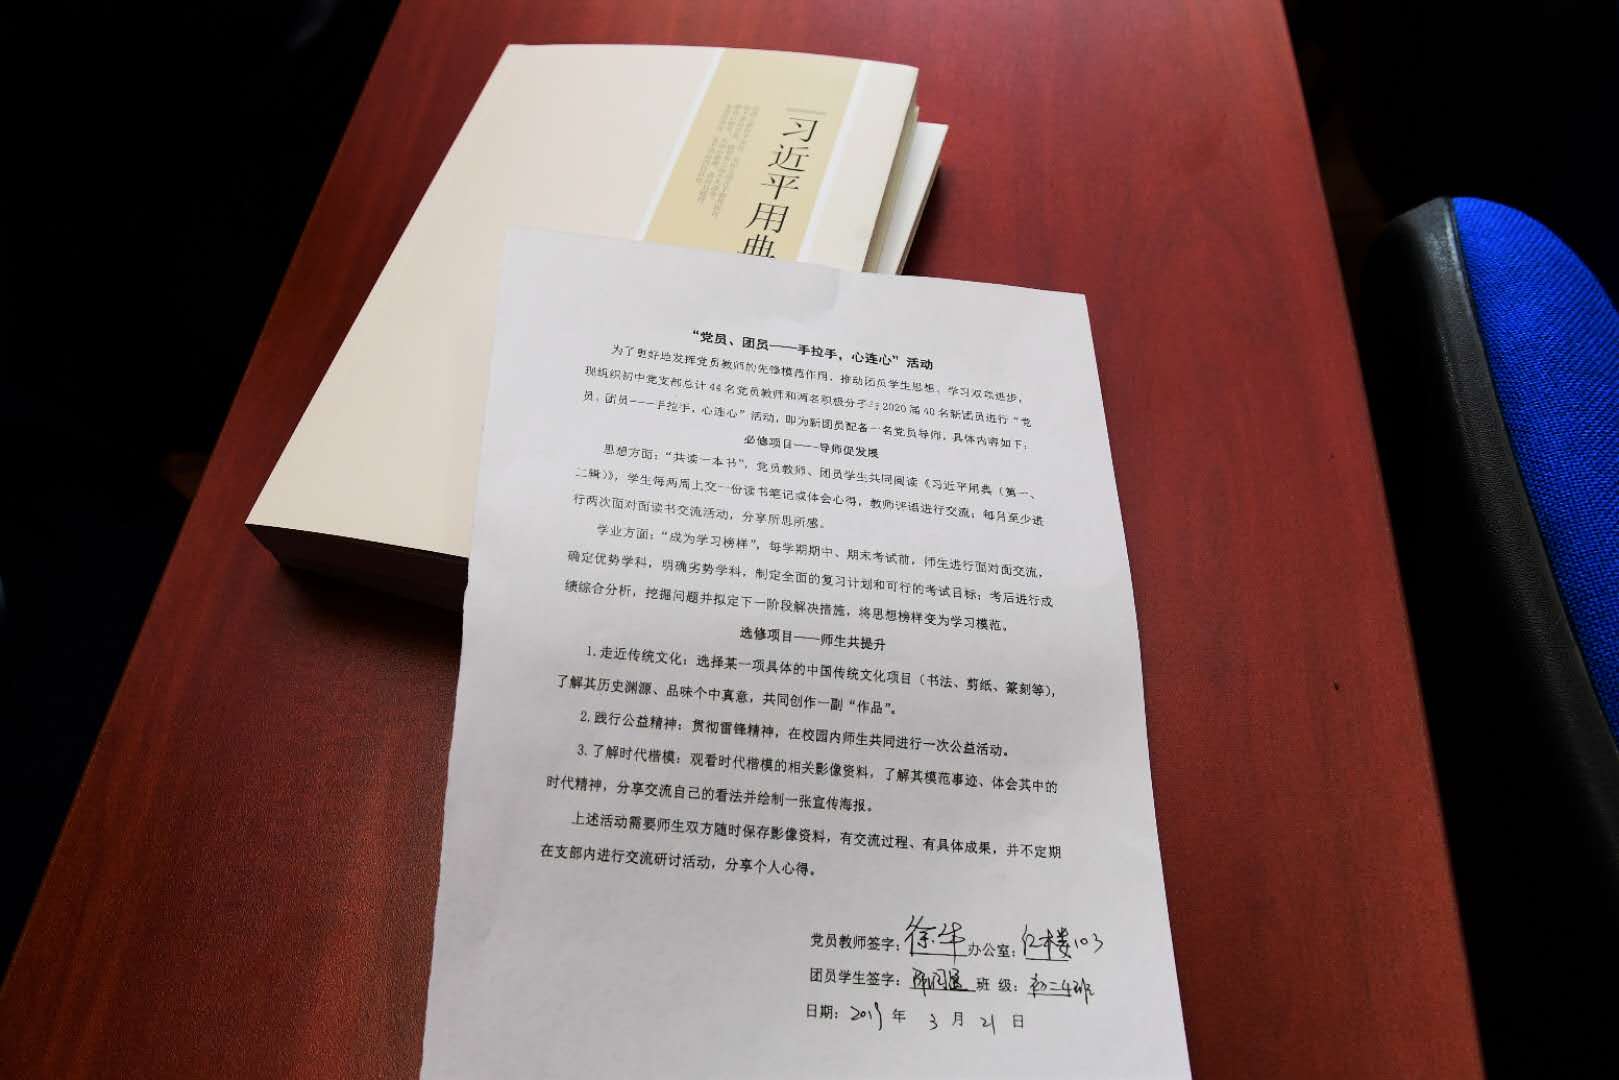 习近平用典
“党员、团员——手拉手，心连心”活动
为了更好地发挥党员教师的先锋模范作用，推动团员学生思想、学习双项进步，
现组织初中党支部总计44名党员教师和两名积极分子与2020届40名新团员进行“党
员、团员---手拉手，心连心”活动，即为新团员配备一名党员导师，具体内容如下：
必修项目---导师促发展
思想方面：“共读一本书”，党员教师、团员学生共同阅读《习近平用典（第一、
二辑）》，学生每两周上交一份读书笔记或体会心得，教师评语进行交流；每月至少进
行两次面对面读书交流活动，分享所思所感。
学业方面：“成为学习榜样”，每学期期中、期末考试前，师生进行面对面交流，
确定优势学科，明确劣势学科，制定全面的复习计划和可行的考试目标；考后进行成
绩综合分析，挖掘问题并拟定下一阶段解决措施，将思想榜样变为学习模范。
选修项目——师生共提升
1.走近传统文化：选择某一项具体的中国传统文化项目（书法、剪纸、篆刻等），
了解其历史渊源、品味个中真意，共同创作一副“作品”。
2.践行公益精神：贯彻雷锋精神，在校园内师生共同进行一次公益活动。
3.了解时代楷模：观看时代楷模的相关影像资料，了解其模范事迹、体会其中的
时代精神，分享交流自己的看法并绘制一张宣传海报。
上述活动需要师生双方随时保存影像资料，有交流过程、有具体成果，并不定期
在支部内进行交流研讨活动，分享个人心得。
党员教师签字：徐华 办公室：红楼103
团员学生签字： 班 级：初二4班
日期：2019 年 3 月 21 日